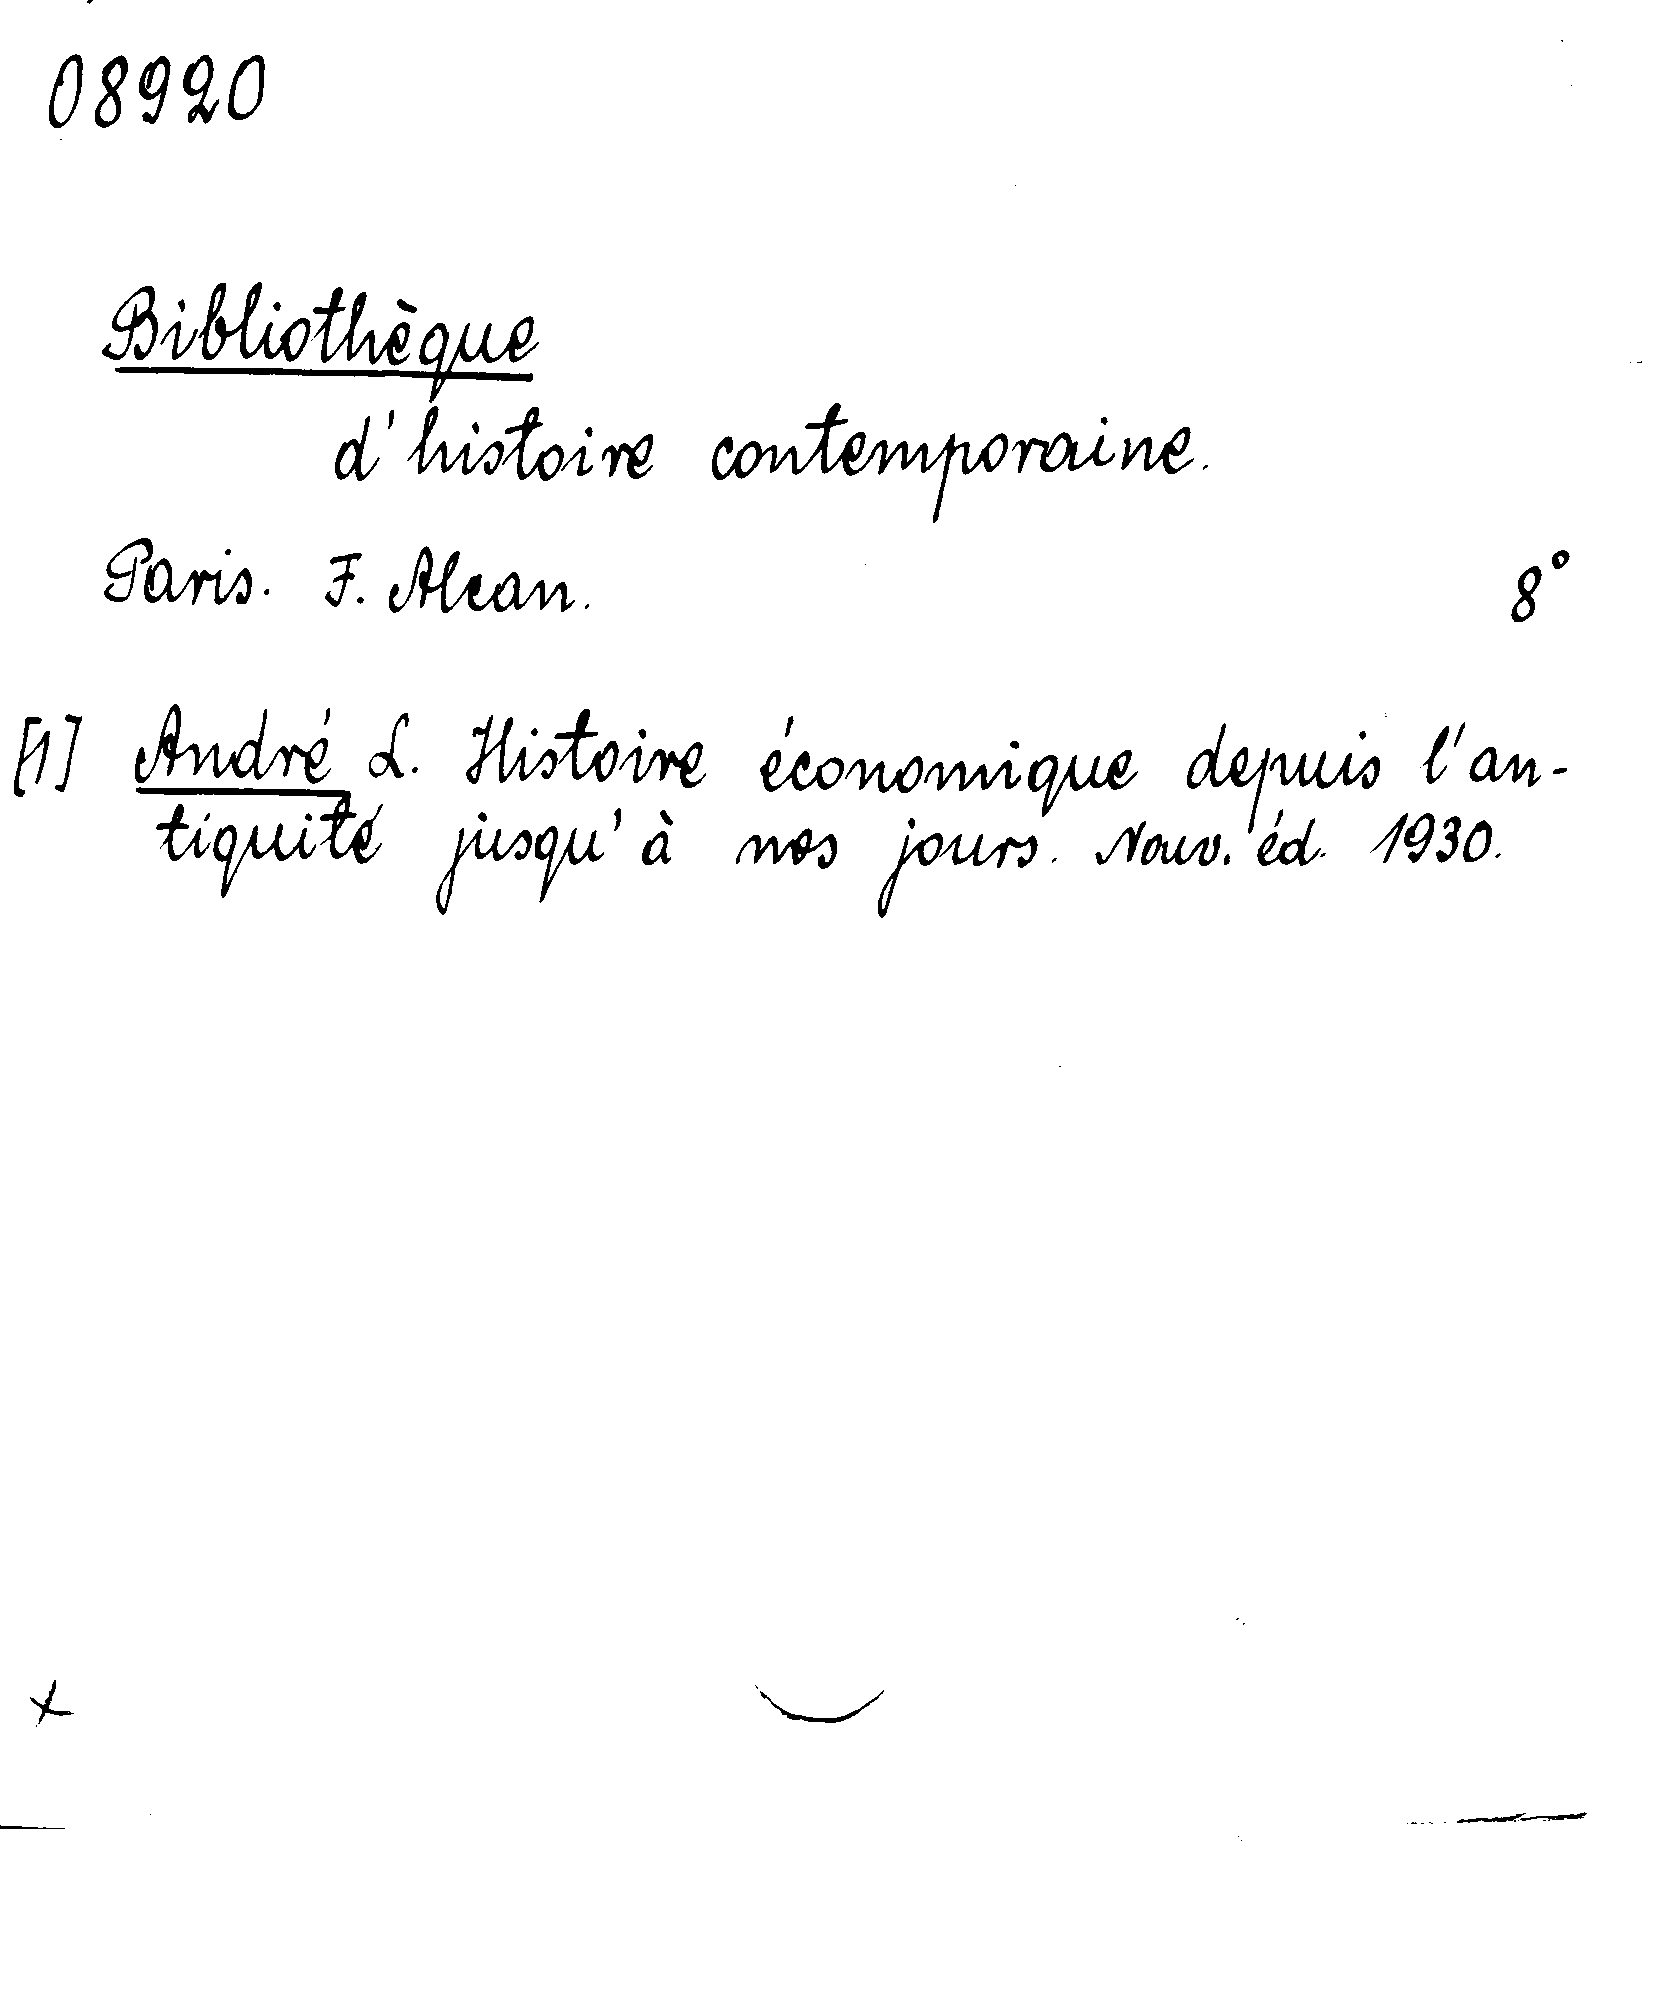 08920
Bibliothèque
d'histoire contemporaine.
Paris. F. Alcan. 8°
[1] André L. Histoire économique depuis l'an-
tiquité jusqu'à nos jours. Nouv. éd. 1930.
x